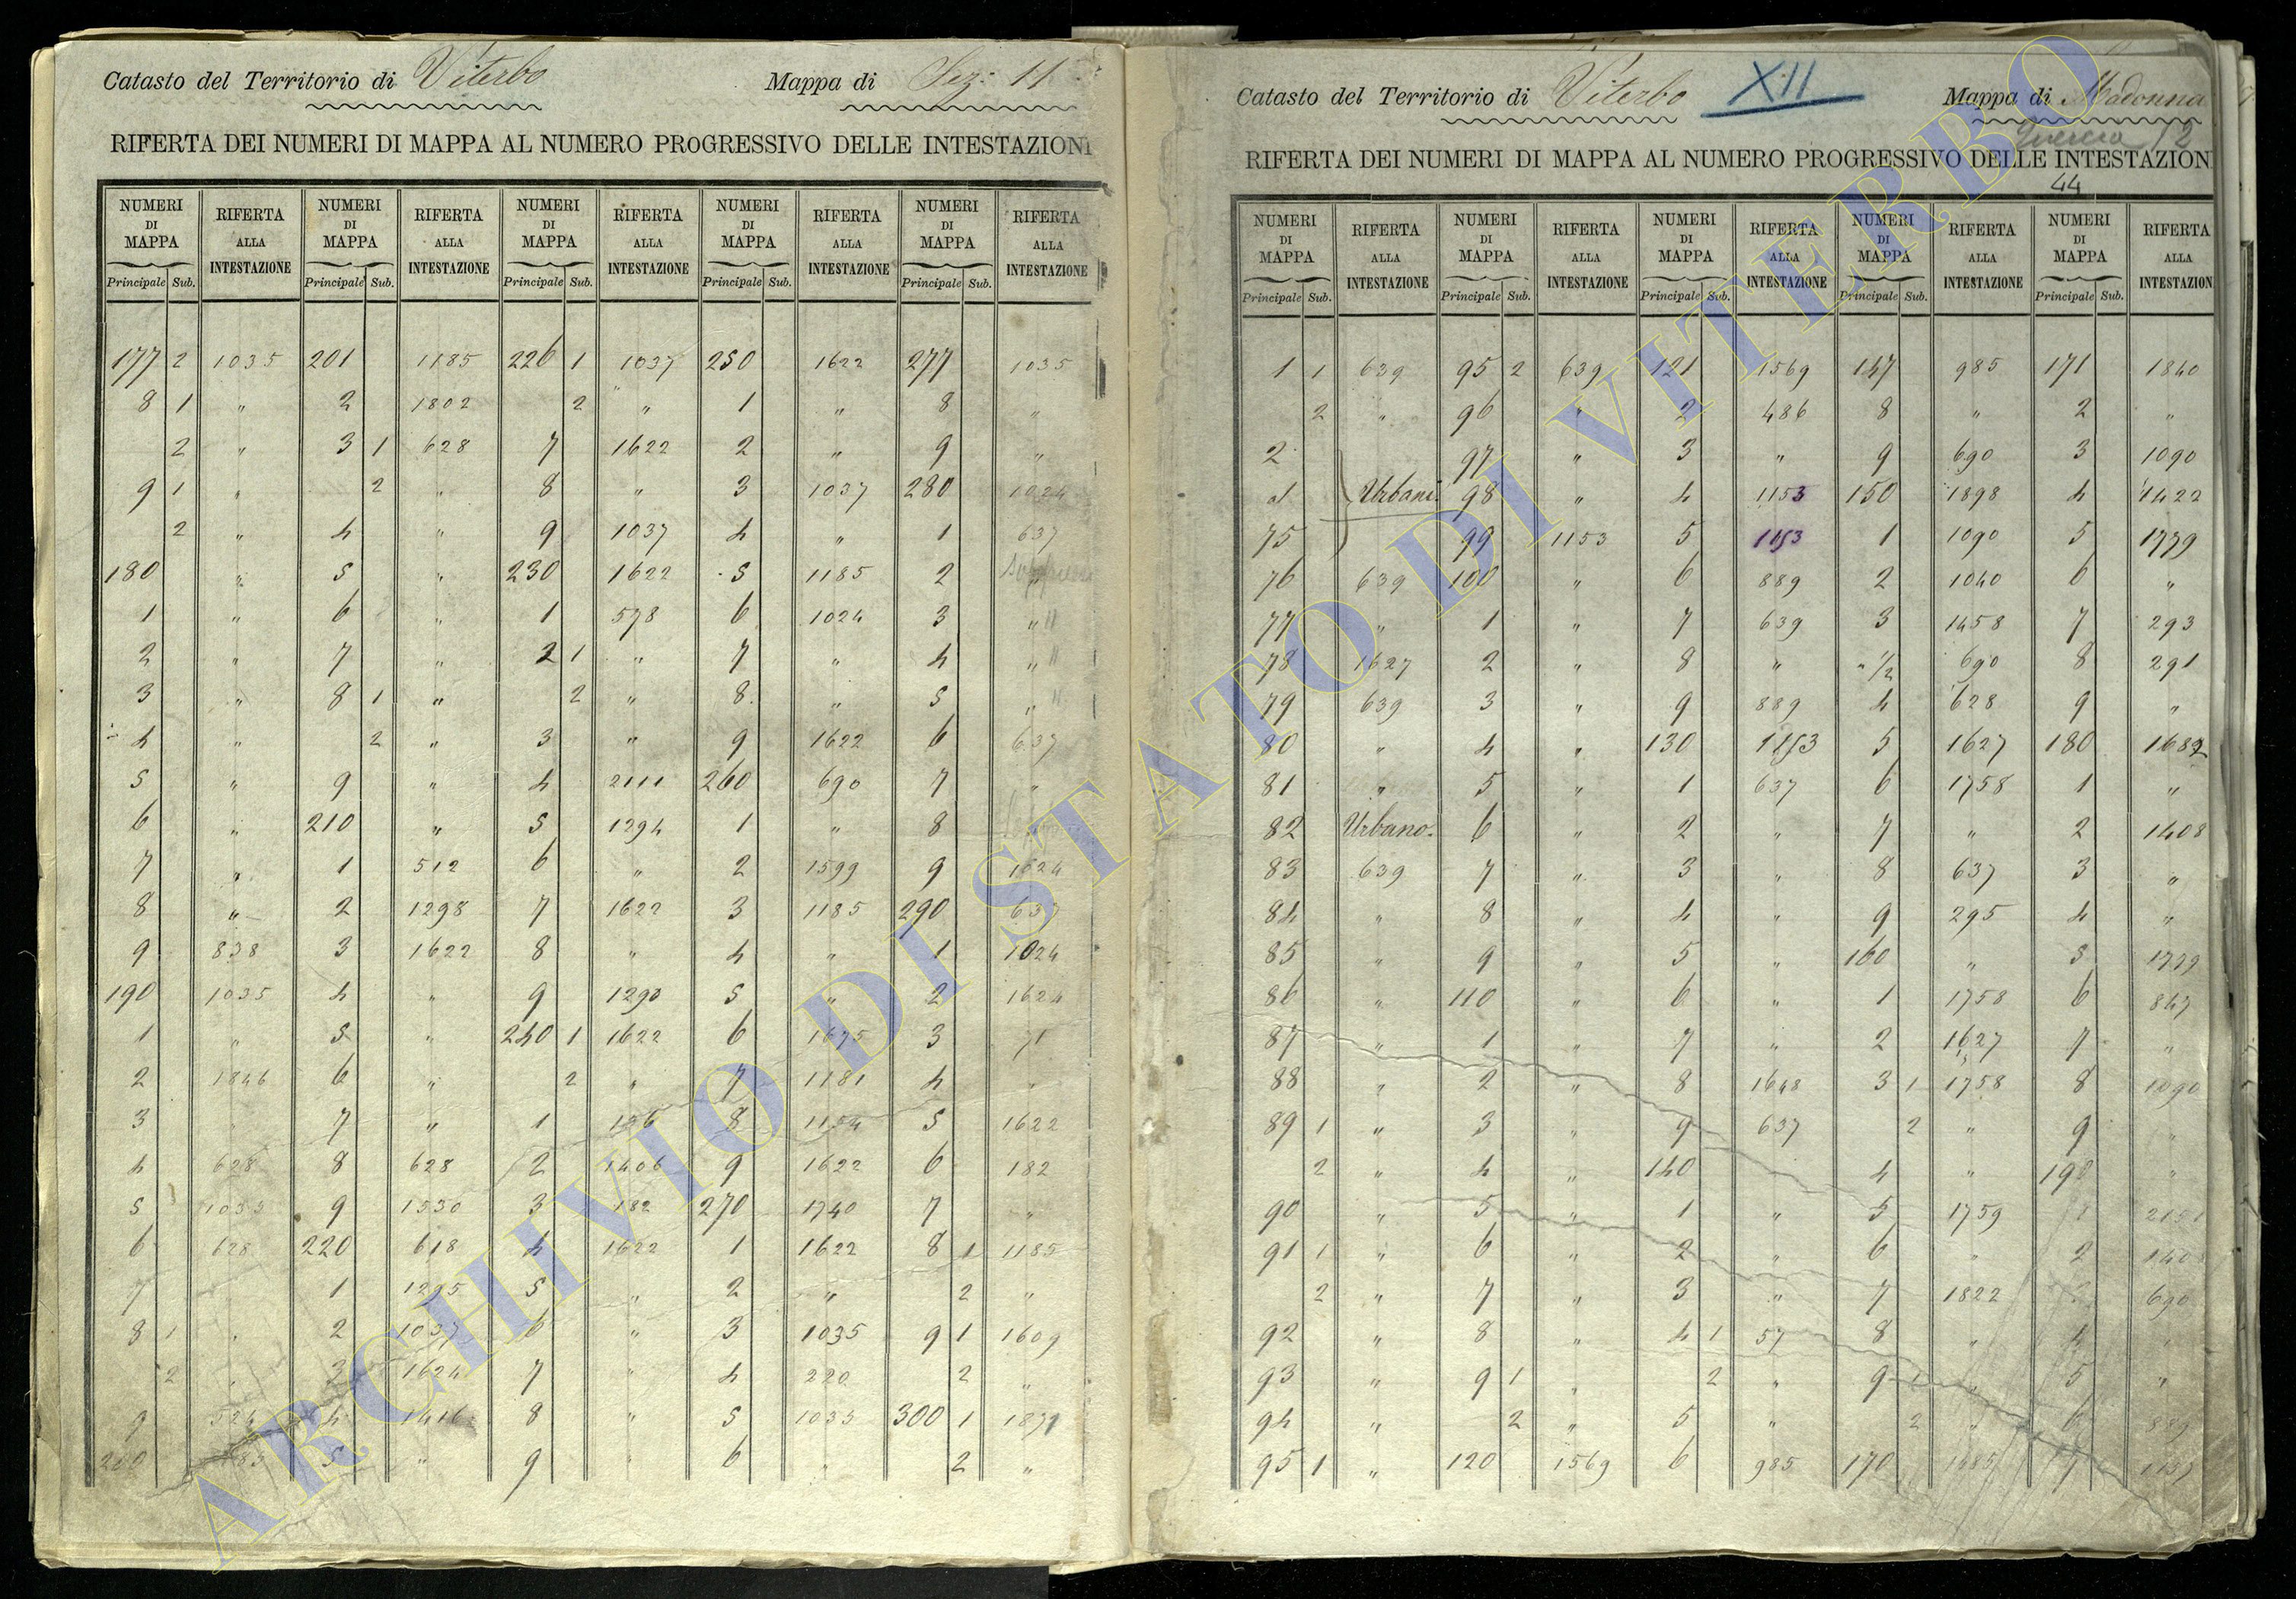 Catasto del Territorio di Viterbo Mappa di Sez. 11
RIFERTA DEI NUMERI DI MAPPA AL NUMERO PROGRESSIVO DELLE INTESTAZIONI
NUMERI DI MAPPA RIFERTA ALLA INTESTAZIONE NUMERI DI MAPPA RIFERTA ALLA INTESTAZIONE NUMERI DI MAPPA RIFERTA ALLA INTESTAZIONE NUMERI DI MAPPA RIFERTA ALLA INTESTAZIONE NUMERI DI MAPPA RIFERTA ALLA INTESTAZIONE
Principale Sub. Principale Sub. Principale Sub. Principale Sub. Principale Sub.
177 2 1035 201 1185 226 1 1037 250 1622 277 1035
8 1 " 2 1802 2 " 1 " 8 "
2 " 3 1 628 7 1622 2 " 9 "
9 1 " 2 " 8 " 3 1037 280 1024
2 " 4 " 9 1037 4 " 1 637
180 " 5 " 230 1622 5 1185 2
1 " 6 " 1 578 6 1024 3 "
2 " 7 " 2 1 " 7 " 4 "
3 " 8 1 " 2 " 8 " 5 "
4 " 2 " 3 " 9 1622 6 637
5 " 9 " 4 2111 260 690 7 "
6 " 210 " 5 1294 1 " 8
7 " 1 512 6 " 2 1599 9 1624
8 " 2 1298 7 1622 3 1185 290 637
9 838 3 1622 8 " 4 " 1 1024
190 1035 4 " 9 1290 5 " 2 1624
1 " 5 " 240 1 1622 6 1675 3 71
2 1846 6 " 2 " 7 1181 4 "
3 " 7 " 1 196 8 1154 5 1622
4 628 8 628 2 1406 9 1622 6 182
5 1035 9 1530 3 182 270 1740 7 "
6 628 220 618 4 1622 1 1622 8 1 1185
7 " 1 1295 5 " 2 " 2 "
8 1 " 2 1037 6 " 3 1035 9 1 1609
2 " 3 1624 7 " 4 220 2 "
9 524 4 1416 8 " 5 1035 300 1 1871
200 5 " 9 " 6 " 2 "
Catasto del Territorio di Viterbo XII Mappa di Madonna
Quercia 12
RIFERTA DEI NUMERI DI MAPPA AL NUMERO PROGRESSIVO DELLE INTESTAZION
44
NUMERI DI MAPPA RIFERTA ALLA INTESTAZIONE NUMERI DI MAPPA RIFERTA ALLA INTESTAZIONE NUMERI DI MAPPA RIFERTA ALLA INTESTAZIONE NUMERI DI MAPPA RIFERTA ALLA INTESTAZIONE NUMERI DI MAPPA RIFERTA ALLA INTESTAZION
Principale Sub. Principale Sub. Principale Sub. Principale Sub. Principale Sub.
1 1 639 95 2 639 121 1569 147 985 171 1840
2 " 96 " 2 486 8 " 2 "
2 97 " 3 " 9 690 3 1090
al Urbani 98 " 4 1153 150 1898 4 1422
75 99 1153 5 1153 1 1090 5 1779
76 639 100 " 6 889 2 1040 6 "
77 " 1 " 7 639 3 1458 7 293
78 1627 2 " 8 " " 1/2 690 8 291
79 639 3 " 9 889 4 628 9 "
80 " 4 " 130 1153 5 1627 180 1682
81 " 5 " 1 637 6 1758 1 "
82 Urbano. 6 " 2 " 7 " 2 1408
83 639 7 " 3 " 8 637 3 "
84 " 8 " 4 " 9 295 4 "
85 " 9 " 5 " 160 " 5 1779
86 " 110 " 6 " 1 1758 6 847
87 " 1 " 7 " 2 1627 7 "
88 " 2 " 8 1648 3 1 1758 8 1090
89 1 " 3 " 9 637 2 " 9 "
2 " 4 " 140 4 " 190 "
90 " 5 " 1 " 5 1759
91 1 " 6 " 2 " 6 " 2 1408
2 " 7 " 3 " 7 1822 690
92 " 8 " 4 1 57 8 " 4 "
93 " 9 1 " 2 " 9 1 " 5 "
94 " 2 " 5 " 2 " 6 889
95 1 " 120 1569 6 985 170 1685 7 1157
ARCHIVIO DI STATO DI VITERBO